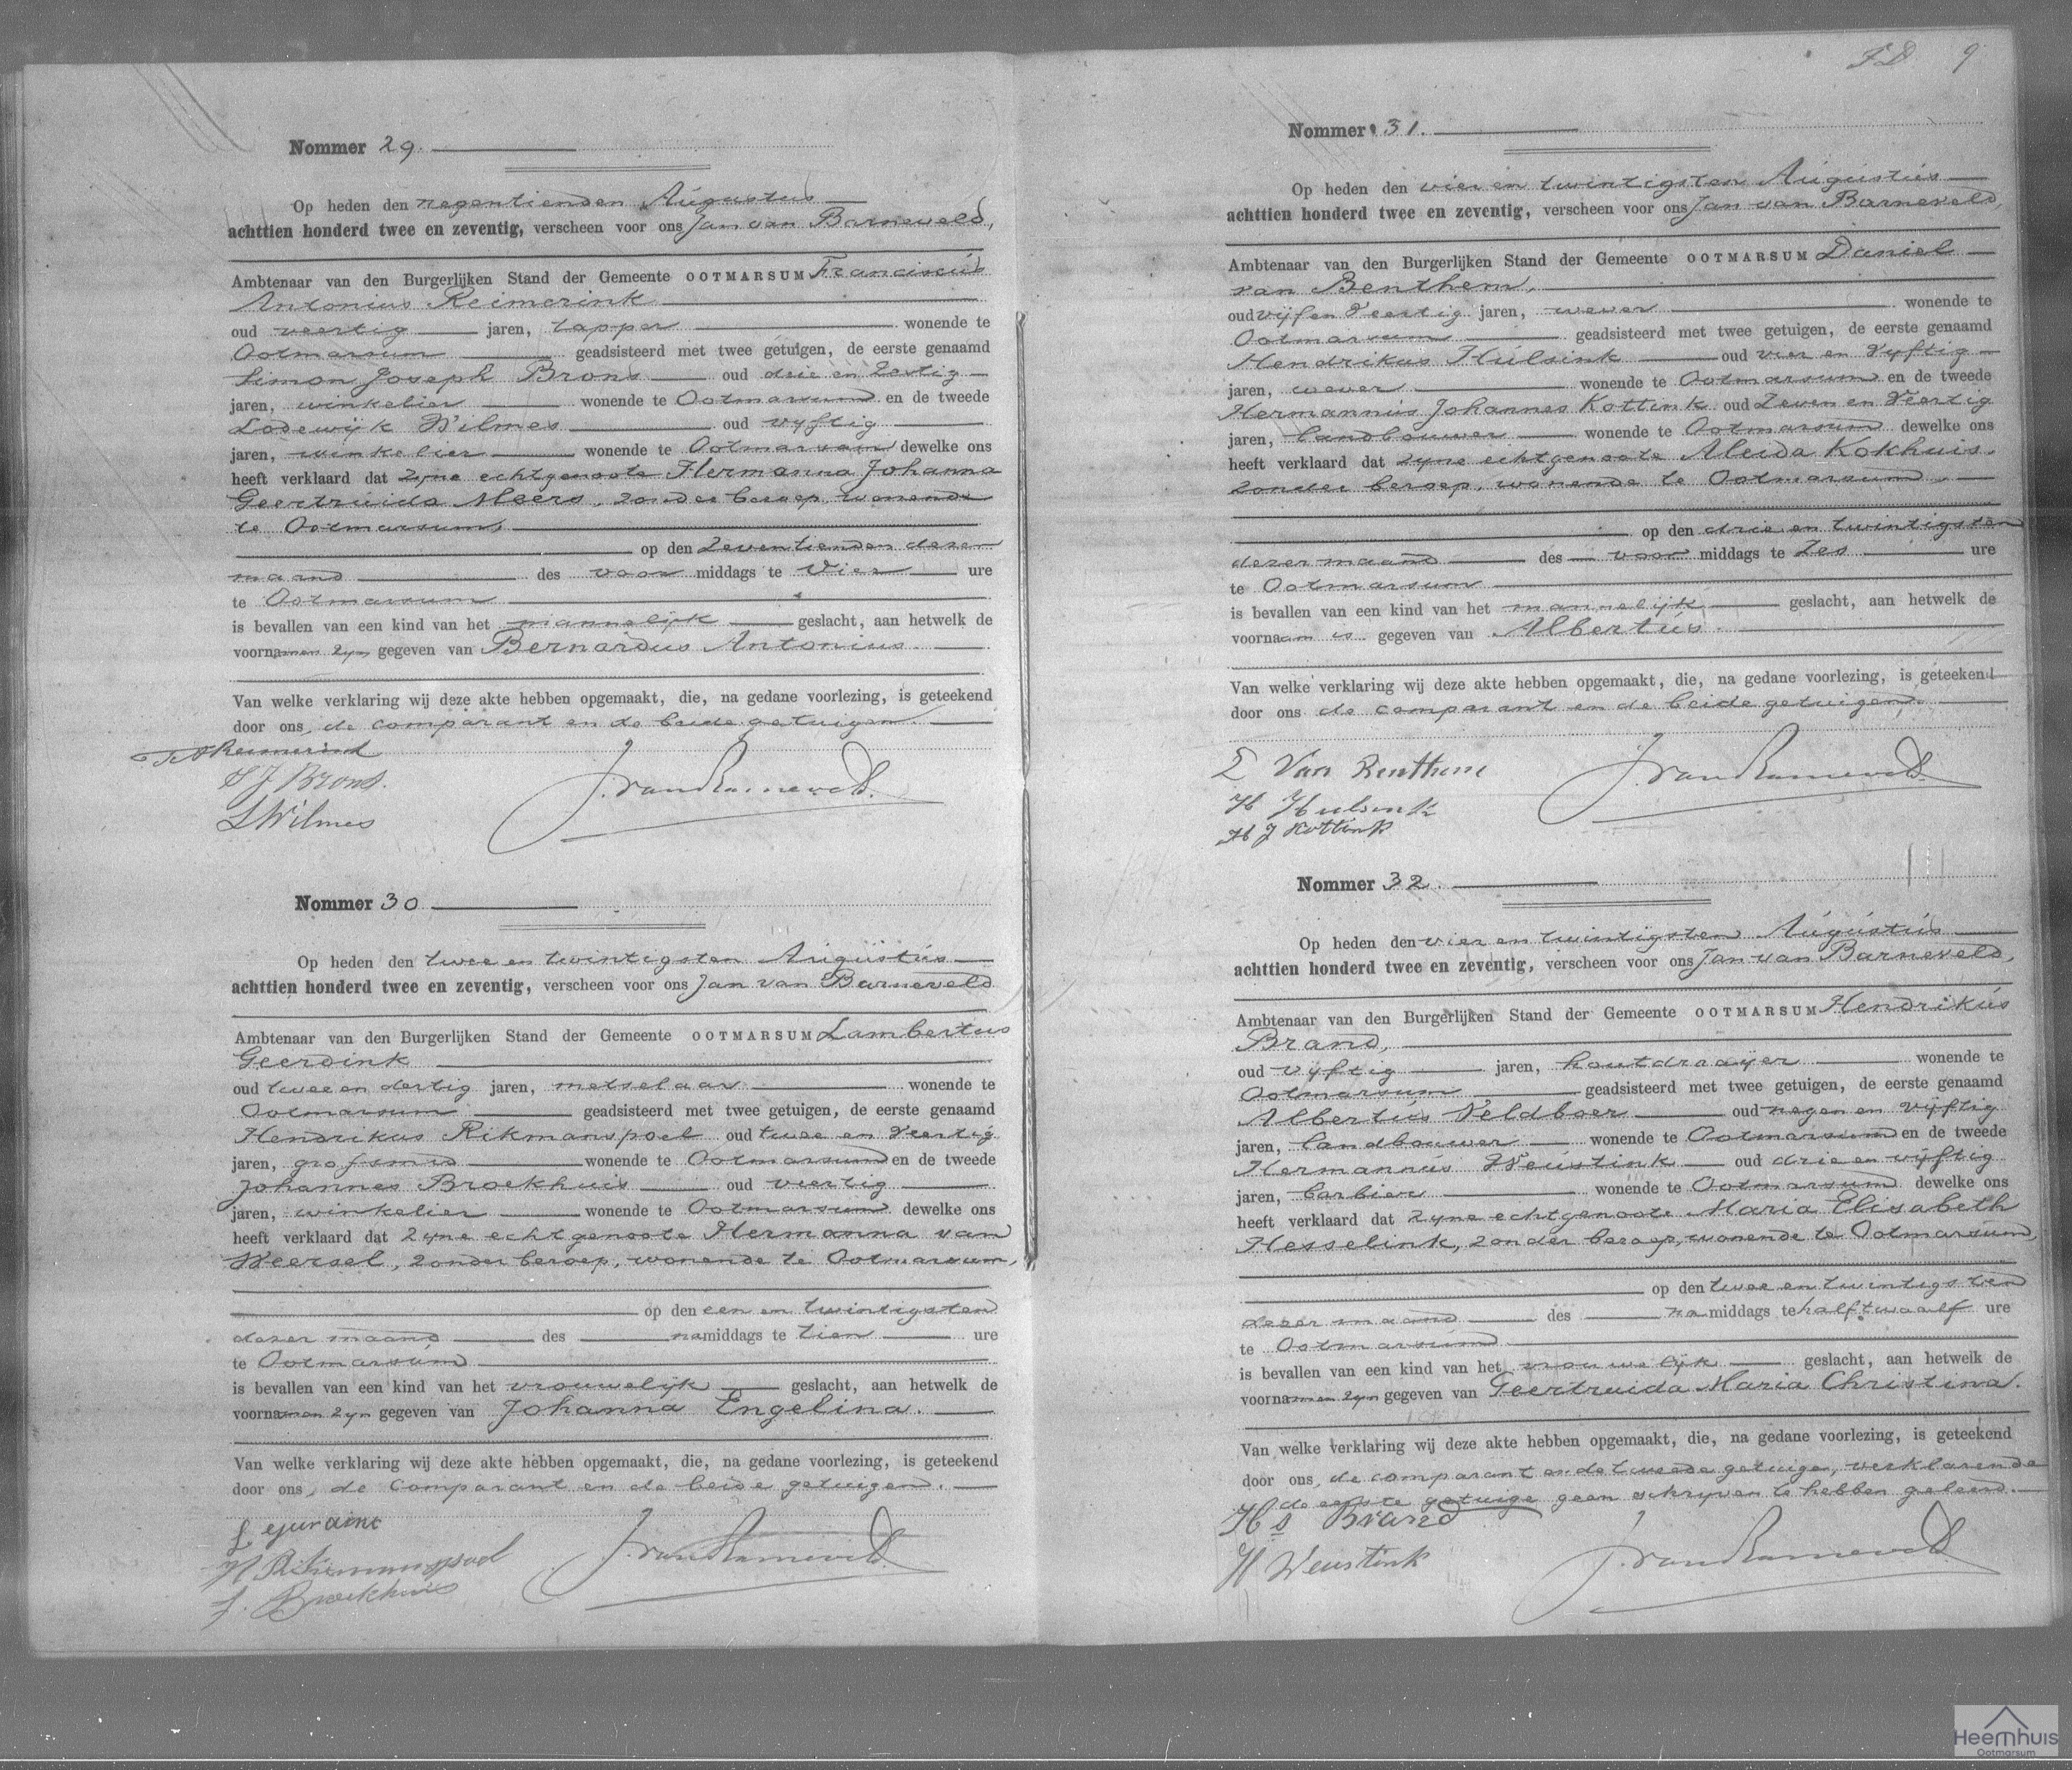 Nommer 29.
Op heden den negentienden Augustus
achttien honderd twee en zeventig, verscheen voor ons Jan van Barneveld,
Ambtenaar van den Burgerlijken Stand der Gemeente OOTMARSUM Franciscus
Antonius Reimerink
oud veertig jaren, tapper wonende te
Ootmarsum geadsisteerd met twee getuigen, de eerste genaamd
Simon Joseph Brons oud drie en Zestig
jaren, winkelier wonende te Ootmarsum en de tweede
Lodewijk Wilmes oud vyftig
jaren, winkelier wonende te Ootmarsum dewelke ons
heeft verklaard dat zyne echtgenoote Hermanna Johanna
Geertruida Meers, zonder beroep, wonende
te Ootmarsum,
op den Zeventienden dezer
maand des voor middags te Vier ure
te Ootmarsum
is bevallen van een kind van het mannelijk geslacht, aan hetwelk de
voornamen zyn gegeven van Bernardus Antonius.
Van welke verklaring wij deze akte hebben opgemaakt, die, na gedane voorlezing, is geteekend
door ons, de comparant en de beide getuigen.
S J Brons.
L Wilmes
J. van Barneveld.
Nommer 30
Op heden den twee en twintigsten Augustus
achttien honderd twee en zeventig, verscheen voor ons Jan van Barneveld
Ambtenaar van den Burgerlijken Stand der Gemeente OOTMARSUM Lambertus
Geerdink
oud twee en dertig jaren, metselaar wonende te
Ootmarsum geadsisteerd met twee getuigen, de eerste genaamd
Hendrikus Rikmanspoel oud twee en Veertig
jaren, grofsmid wonende te Ootmarsum en de tweede
Johannes Broekhuis oud viertig
jaren, winkelier wonende te Ootmarsum dewelke ons
heeft verklaard dat zyne echtgenoote Hermanna van
Weersel, zonder beroep, wonende te Ootmarsum,
op den een en twintigsten
dezer maand des namiddags te tien ure
te Ootmarsum
is bevallen van een kind van het vrouwelijk geslacht, aan hetwelk de
voornamen zyn gegeven van Johanna Engelina.
Van welke verklaring wij deze akte hebben opgemaakt, die, na gedane voorlezing, is geteekend
door ons, de Comparant en de beide getuigen.
J. Broekhuis
J. van Barneveld.
9
Nommer 31.
Op heden den vier en twintigsten Augustus
achttien honderd twee en zeventig, verscheen voor ons Jan van Barneveld,
Ambtenaar van den Burgerlijken Stand der Gemeente OOTMARSUM Daniel
van Benthem,
oud vijf en Veertig jaren, wever wonende te
Ootmarsum geadsisteerd met twee getuigen, de eerste genaamd
Hendrikus Hulsink oud vier en Vyftig
jaren, wever wonende te Ootmarsum en de tweede
Hermannus Johannes Kottink oud Zeven en Veertig
jaren, landbouwer wonende te Ootmarsum dewelke ons
heeft verklaard dat zyne echtgenoote Aleida Kokhuis,
zonder beroep, wonende te Ootmarsum,
op den drie en twintigsten
dezer maand des voor middags te Zes ure
te Ootmarsum
is bevallen van een kind van het mannelijk geslacht, aan hetwelk de
voornaam is gegeven van Albertus.
Van welke verklaring wij deze akte hebben opgemaakt, die, na gedane voorlezing, is geteekend
door ons de comparant en de beide getuigen.
Van Benthem
H Hulsink
H J Kottink
J. van Barneveld.
Nommer 32.
Op heden den vier en twintigsten Augustus
achttien honderd twee en zeventig, verscheen voor ons Jan van Barneveld,
Ambtenaar van den Burgerlijken Stand der Gemeente OOTMARSUM Hendrikus
Brand,
oud vyftig jaren, houtdraaijer wonende te
Ootmarsum geadsisteerd met twee getuigen, de eerste genaamd
Albertus Veldboer oud negen en vijftig
jaren, landbouwer wonende te Ootmarsum en de tweede
Hermannus Weustink oud drie en vijftig
jaren, barbier wonende te Ootmarsum dewelke ons
heeft verklaard dat zyne echtgenoote Maria Elisabeth
Hesselink, zonder beroep, wonende te Ootmarsum,
op den twee en twintigsten
dezer maand des na middags te half twaalf ure
te Ootmarsum
is bevallen van een kind van het vrouwelijk geslacht, aan hetwelk de
voornamen zyn gegeven van Geertruida Maria Christina.
Van welke verklaring wij deze akte hebben opgemaakt, die, na gedane voorlezing, is geteekend
door ons, de comparant en de tweede getuige, verklarende
de eerste getuige geen schryven te hebben geleerd.
Hs Brand
H Weustink
J. van Barneveld
Heemhuis
Ootmarsum